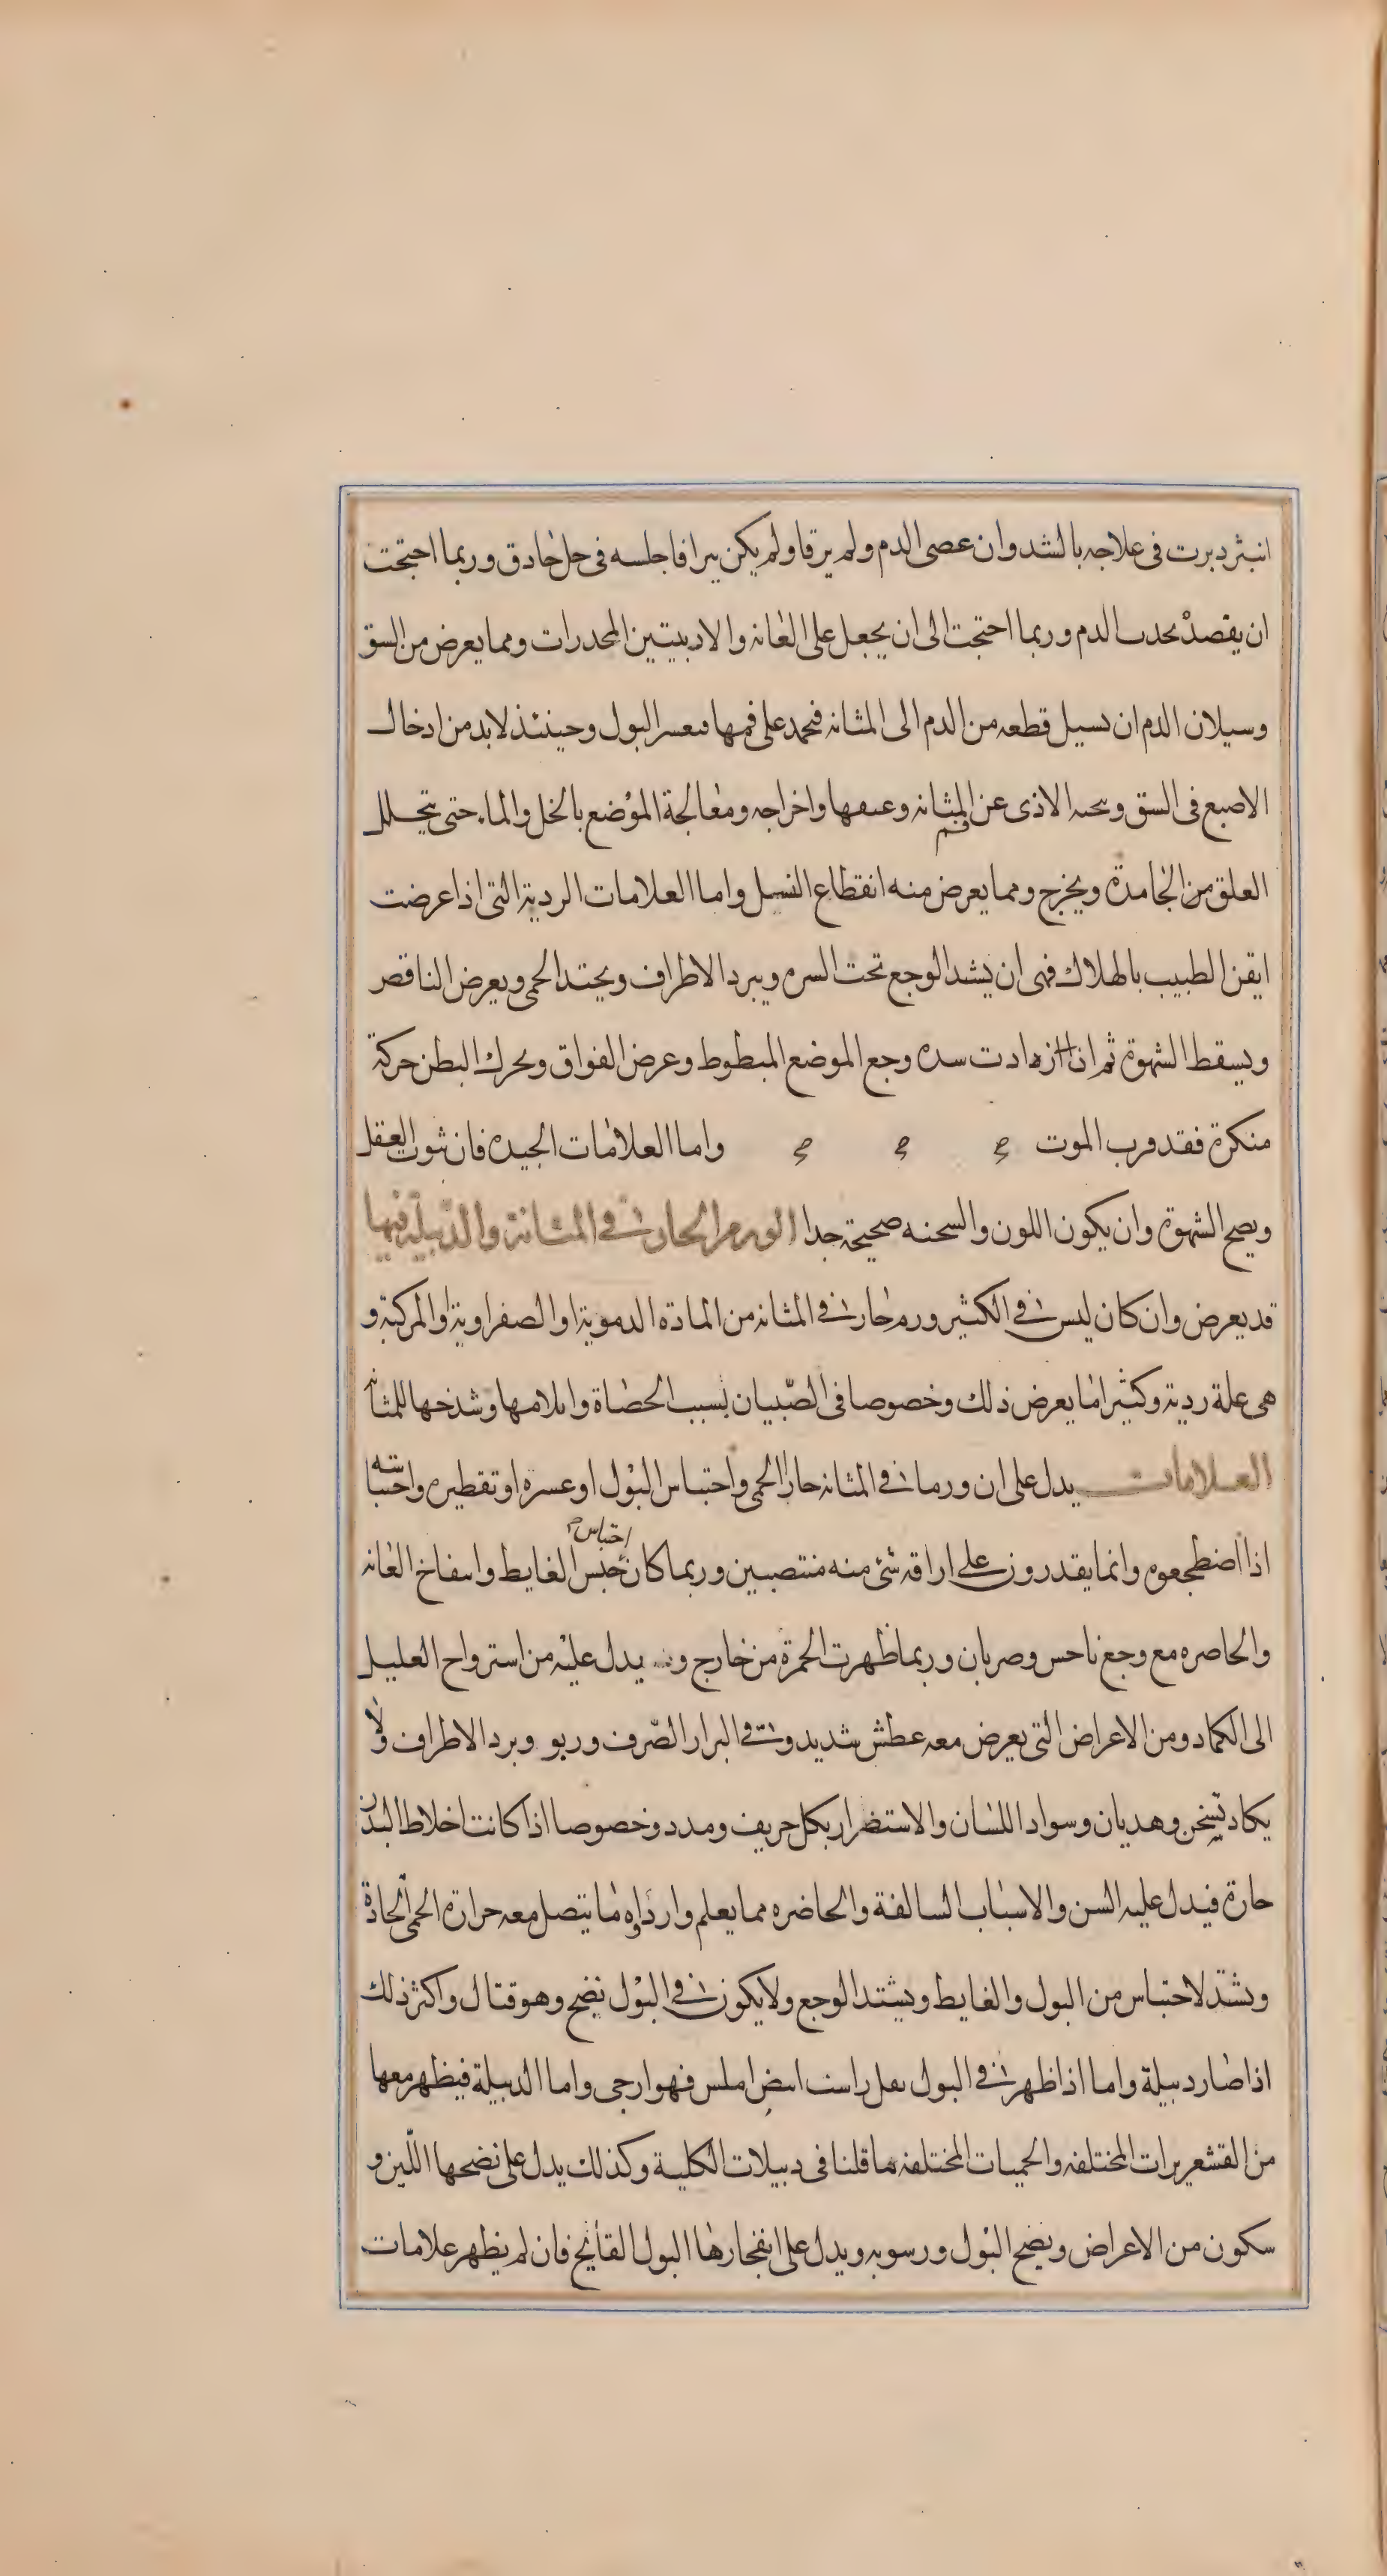 انبثر دبرت فى علاجه بالشد وان عصى الدم ولم يرقا ولم يكن يبرا فاجلسه فى خل حاذق وربما احتجت
ان يقصد بجذب الدم وربما احتجت الى ان يجعل على العانه والاربيتين المخدرات ومما يعرض من الشق
وسيلان الدم ان يسيل قطعه من الدم الى المثانه فيجمد على فمها فيعسر البول وحينئذ لابد من ادخال
الاصبع فى الشق وتنحيه الاذى عن فم المثانه وعنقها واخراجه ومعالجة الموضع بالخل والماء حتى يتحلل
العلق من الجامدة ويخرج ومما يعرض منه انقطاع النسل واما العلامات الردية التى اذا عرضت
ايقن الطبيب بالهلاك فهى ان يشتد الوجع تحت السره ويبرد الاطراف ويحتد الحمى ويعرض النافض
ويسقط الشهوة ثم اذا ازدادت شده وجع الموضع المبطوط وعرض الفواق وتحرك البطن حركة
منكرة فقد قرب الموت واما العلامات الجيده فان ثوب العقل
ويصح الشهوة وان يكون اللون والسحنه صحيحة جدا الورم الحار فى المثانة والدبيلة فيها
قد يعرض وان كان ليس فى الكثير ورم حار فى المثانه من المادة الدموية او الصفراوية او المركبة و
هى علة ردية وكثيرا ما يعرض ذلك وخصوصا فى الصّبيان بسبب الحصاة وايلامها وشدخها للمثانه
العلامات يدل على ان ورما فى المثانه حار الحمى واحتباس البول او عسره او تقطيره واحتباسه
اذا اضطجعوه وانما يقدرون على اراقه شئ منه منتصبين وربما كان احتباس حبس الغايط وانتفاخ العانه
والخاصره مع وجع ناخس وضربان وربما ظهرت الحمرة من خارج وقد يدل عليه من استرواح العليل
الى الكماد ومن الاعراض التى يعرض معه عطش شديد وقئ المرار الصّرف وربو وبرد الاطراف ولا
يكاد تسخن وهديان وسواد اللسان والاستضرار بكل حريف ومدر وخصوصا اذا كانت اخلاط البدن
حارة فيدل عليه السن والاسباب السالفة والحاضره مما يعلم وارداوه ما يتصل معه حرارة الحمى الحادة
ويشتد لاحتباس من البول والغايط ويشتد الوجع ولا يكون فى البول نضج وهو قتال واكثر ذلك
اذا صار دبيلة واما اذا ظهر فى البول ثفل راسب ابيض املس فهو ارجى واما الدبيلة فيظهر معها
من القشعريرات المختلفه والحميات المختلفه ما قلنا فى دبيلات الكلية وكذلك يدل على نضجها اللّين و
سكون من الاعراض ونضج البول ورسوبه ويدل على انفجارها البول القايح فان لم يظهر علامات